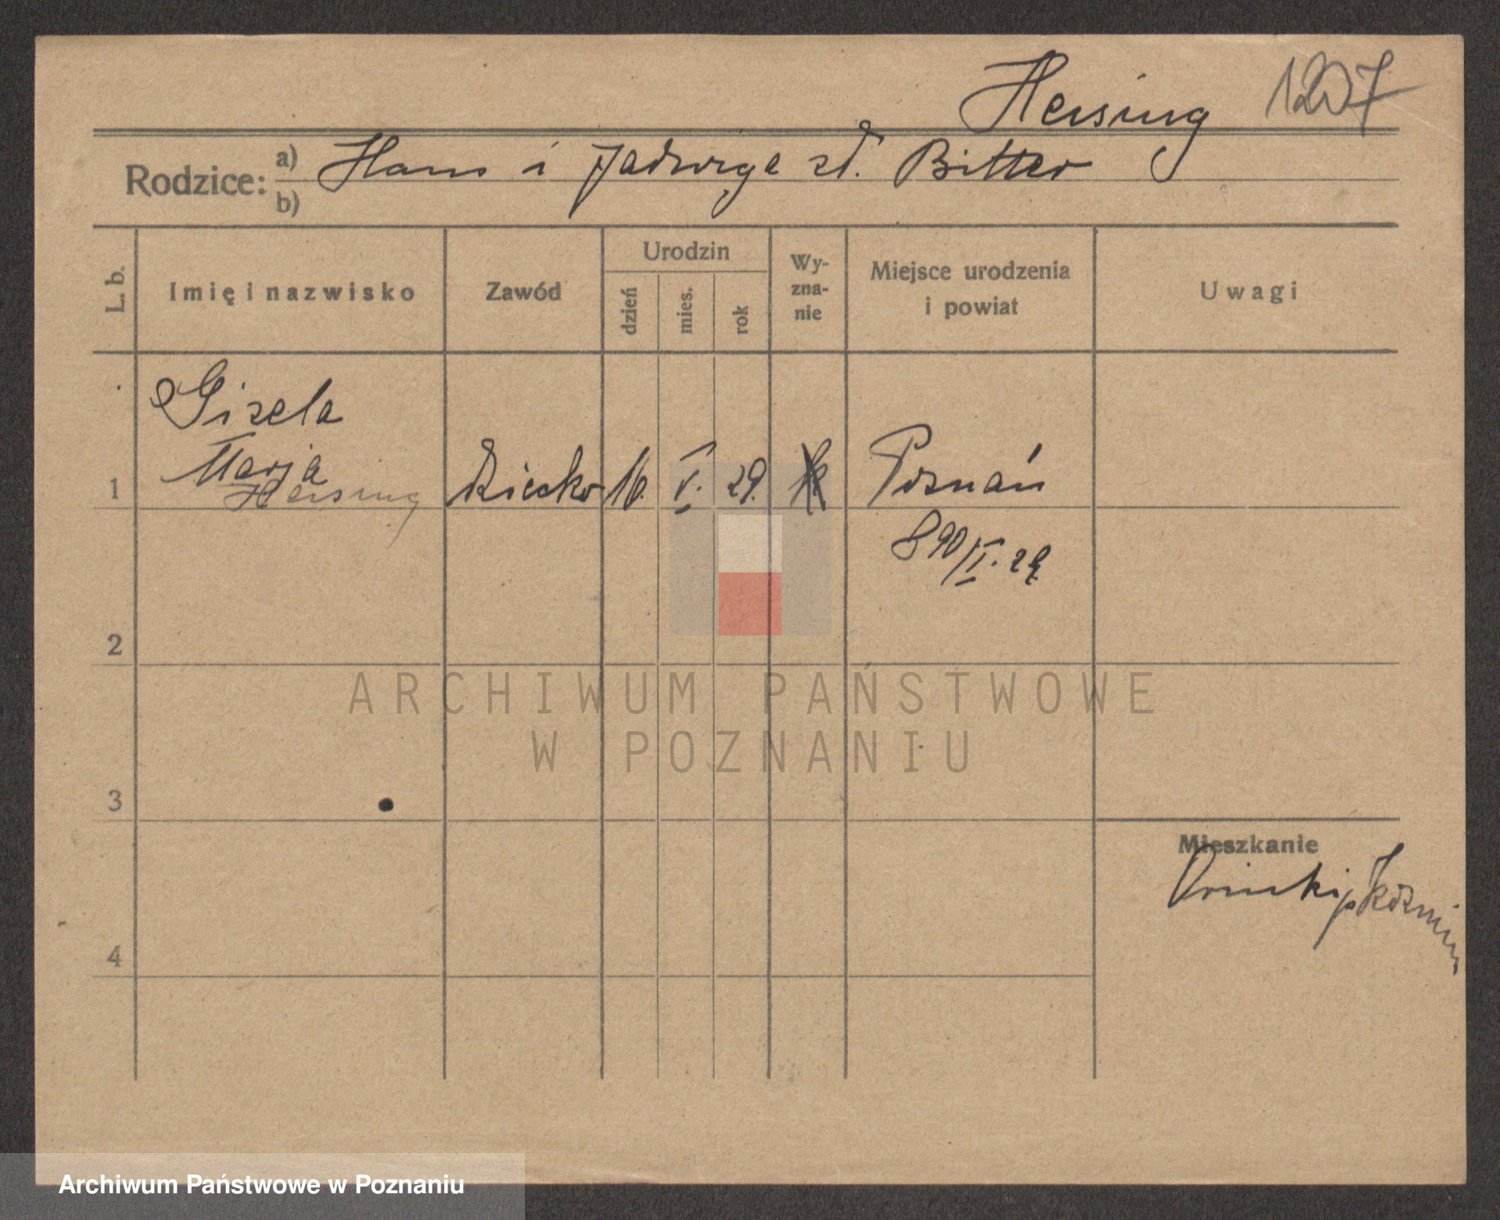 Hersing 1207
Rodzice: a) Hans i Jadwiga zd. Bitter
b)
L. b.
Imię i nazwisko
Zawód
Urodzin
dzień
mies.
rok
Wy-
zna-
nie
Miejsce urodzenia
i powiat
Uwagi
Gisela
Marja
Hersing
1
Dziecko 16. V. 29. Poznań
890/II. 29
2
3
4
Mieszkanie
ARCHIWUM PAŃSTWOWE
W POZNANIU
Archiwum Państwowe w Poznaniu